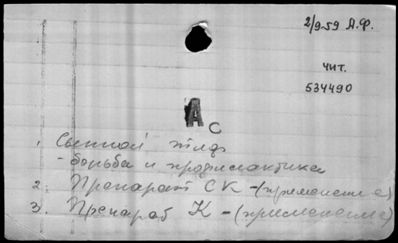 2/959 А.Ф.
чит.
534490
А С
1. Сыпной тиф
- борьба и профилактика
2. Препарат СК - (применение)
3. Препарат К - (применение)